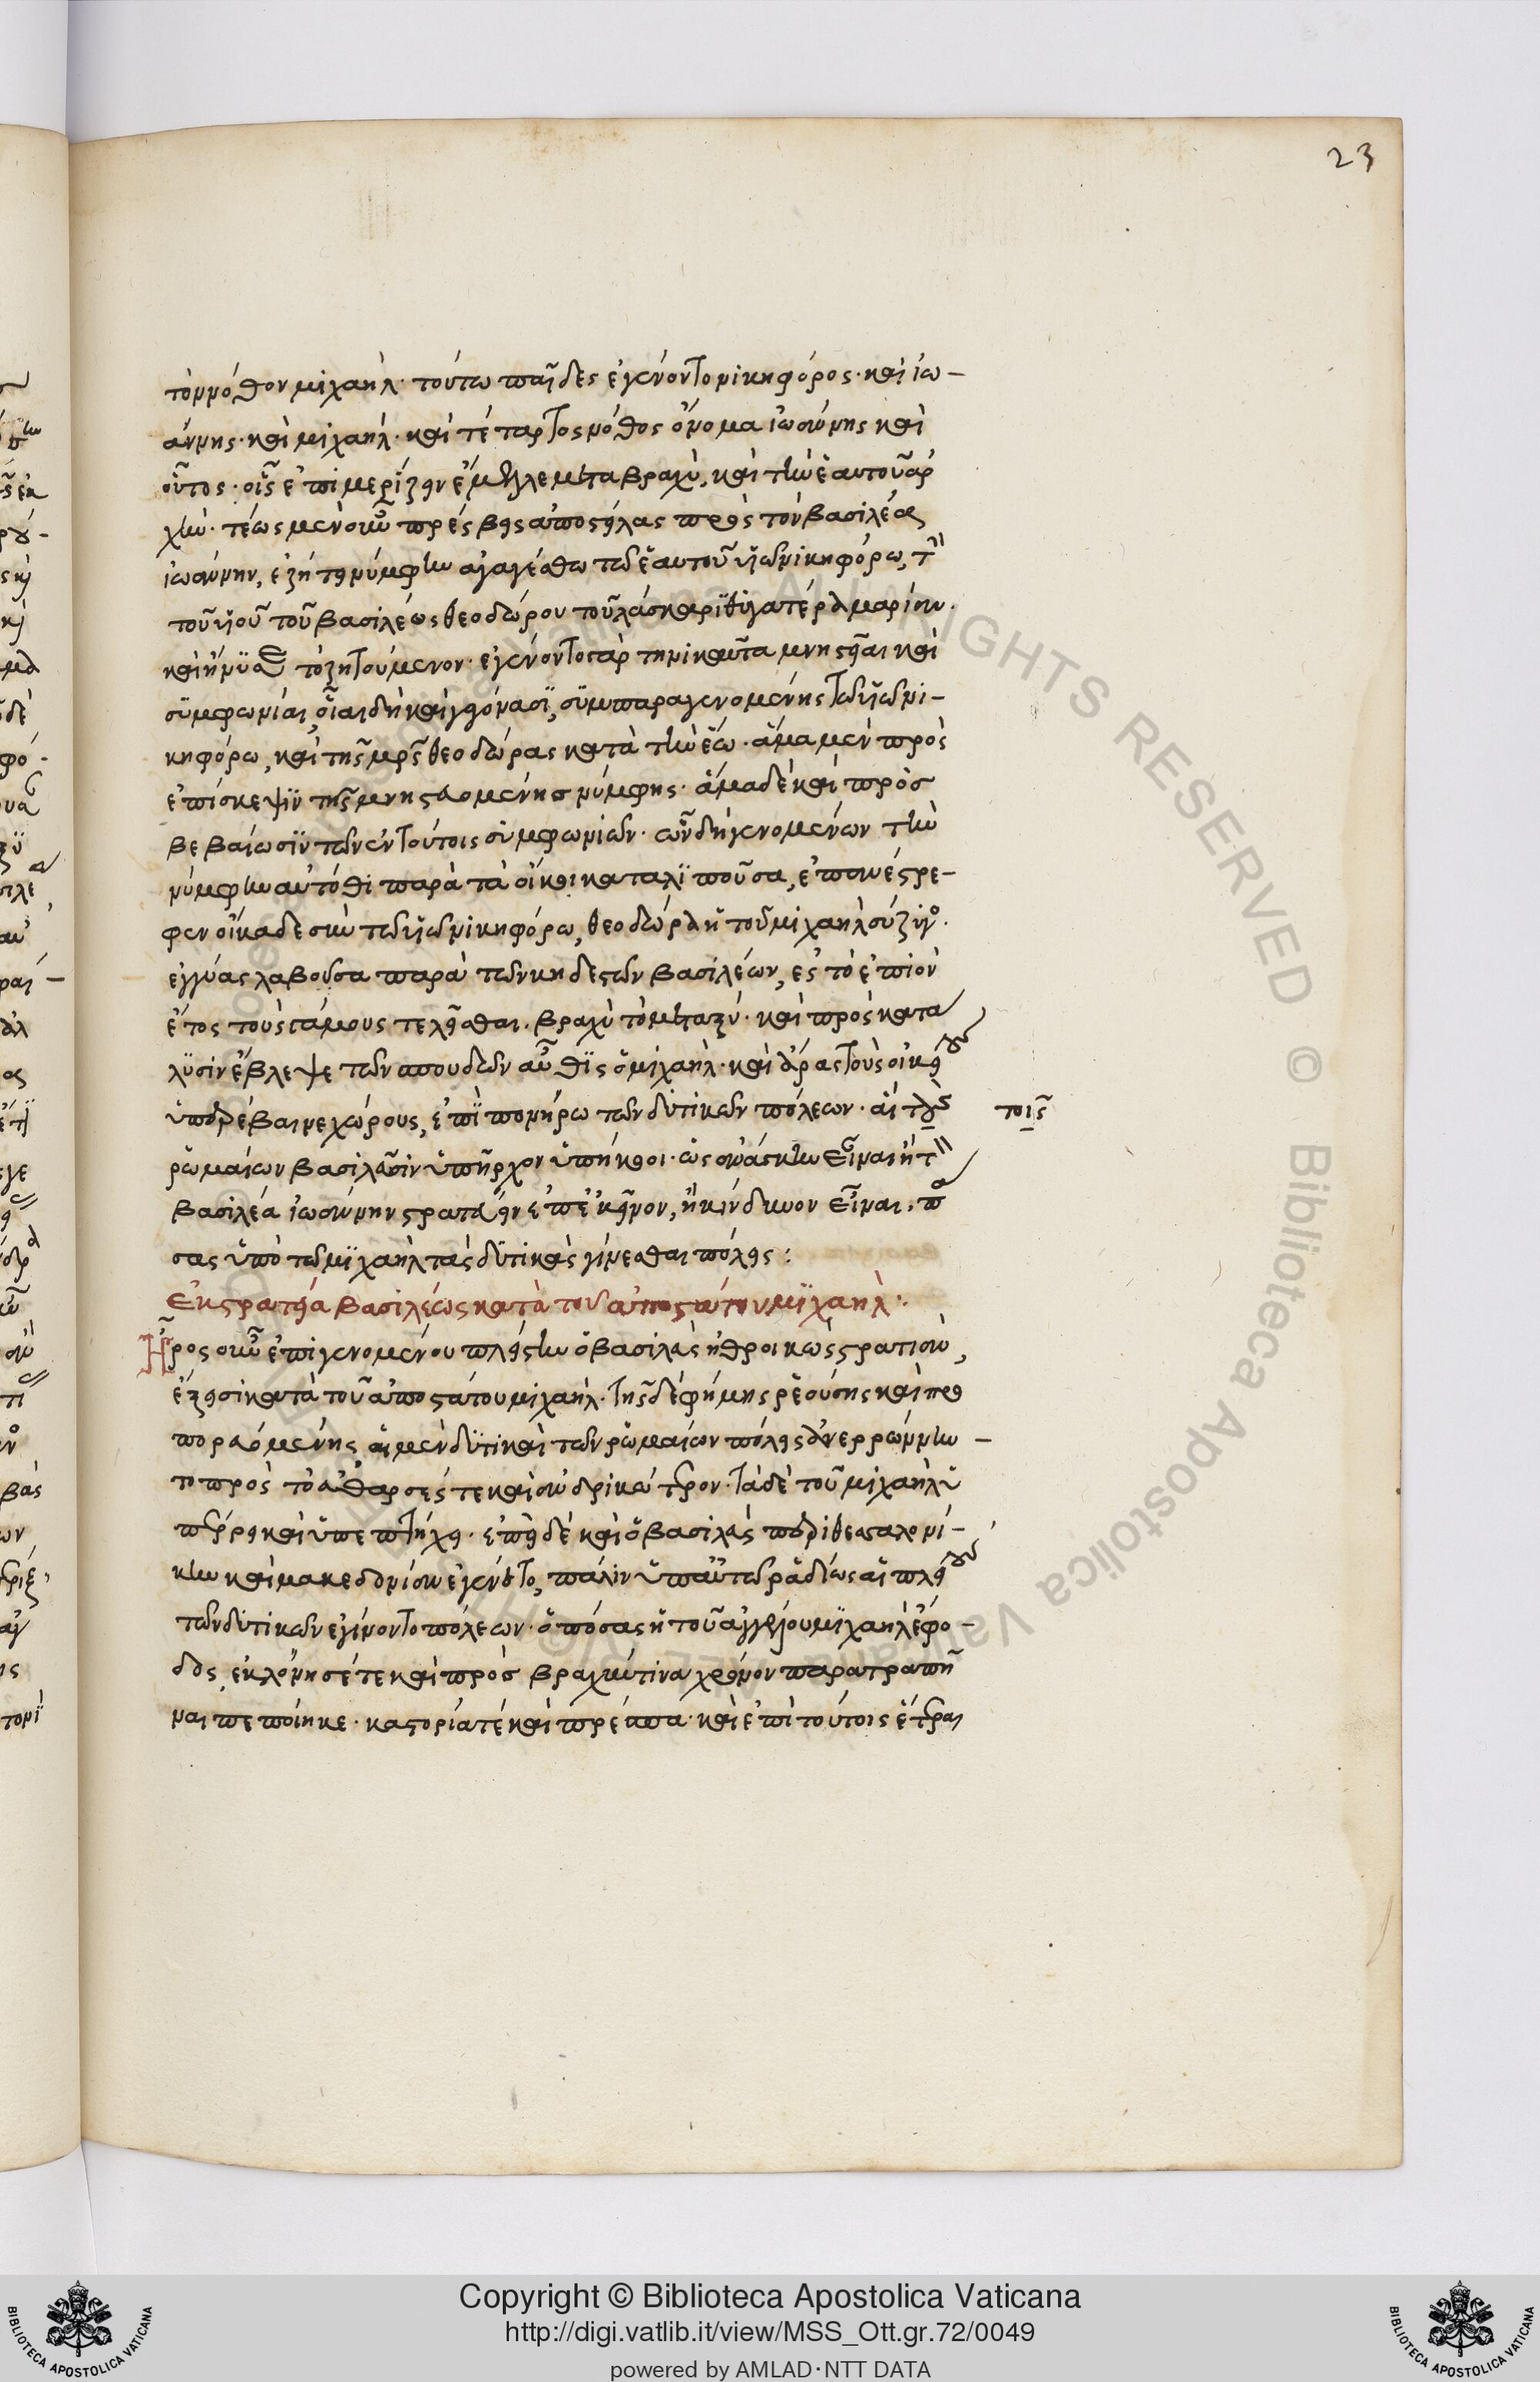 23
τὸν νόθον μιχαήλ· τούτω παῖδες ἐγένοντο νικηφόρος· καὶ ἰω-
άννης· καὶ μιχαήλ· καὶ τέταρτος νόθος ὄνομα ἰωάννης καὶ
οὗτος· οἷς ἐπιμερίζειν ἔμελλε μετὰ βραχὺ, καὶ τὴν ἑαυτοῦ ἀρ
χήν· τέως μὲν οὖν πρέσβεις ἀποστείλας πρὸς τὸν βασιλέα
ἰωάννην, ἐζήτει νύμφην ἀγαγέσθαι τῶ ἑαυτοῦ υἱῶ νικηφόρω, τὴν
τοῦ υἱοῦ τοῦ βασιλέως θεοδώρου τοῦ λάσκαρι θυγατέρα μαρίαν·
καὶ ἤνυσε τὸ ζητούμενον· ἐγένοντο γὰρ τηνικαῦτα μνηστεῖαι καὶ
συμφωνίαι, οἷαι δὴ καὶ γεγόνασι, συμπαραγενομένης τῶ υἱῶ νι-
κηφόρω, καὶ τῆς μητρὸς θεοδώρας κατὰ τὴν ἕω· ἅμα μὲν πρὸς
ἐπίσκεψιν τῆς μνηστευομένης νύμφης· ἅμα δὲ καὶ πρὸς
βεβαίωσιν τῶν ἐν τούτοις συμφωνιῶν· ὧν δὴ γενομένων τὴν
νύμφην αὐτόθι παρὰ τὰ οἴκοι καταλιποῦσα, ἐπανέστρε-
φεν οἴκαδε σὺν τῶ υἱῶ νικηφόρω, θεοδώρα ἡ τοῦ μιχαὴλ σύζυγος·
ἐγγύας λαβοῦσα παρὰ τῶν κηδεστῶν βασιλέων, ἐς τὸ ἐπιὸν
ἔτος τοὺς γάμους τελεῖσθαι. βραχὺ τὸ μεταξύ· καὶ πρὸς κατά
λυσιν ἔβλεψε τῶν σπουδῶν αὖθις ὁ μιχαήλ· καὶ ἄρας τοὺς οἰκείους
ὑπερέβαινε χώρους, ἐπὶ πονήρω τῶν δυτικῶν πόλεων· αἳ τοῖς
τοῖς
ῥωμαίων βασιλεῦσιν ὑπῆρχον ὑπήκοοι· ὡς ἀνάγκην εἶναι ἢ τὸν
βασιλέα ἰωάννην στρατεύειν ἐπ' ἐκεῖνον, ἢ κίνδυνον εἶναι, πά
σας ὑπὸ τῶ μιχαὴλ τὰς δυτικὰς γίνεσθαι πόλεις:
ἐκστρατεία βασιλέως κατὰ τοῦ ἀποστάτου μιχαήλ·
Ἦρος οὖν ἐπιγενομένου πλείστην ὁ βασιλεὺς ἠθροικὼς στρατιὰν,
ἔξεισι κατὰ τοῦ ἀποστάτου μιχαήλ. τῆς δὲ φήμης ῥεούσης καὶ προ
πορευομένης, αἱ μὲν δυτικαὶ τῶν ῥωμαίων πόλεις ἀνερρώννυν-
το πρὸς τὸ εὐθαρσές τε καὶ ἀνδρικώτερον· τὰ δὲ τοῦ μιχαὴλ ὑ
πέρρει καὶ ὑπεπτήχει· ἐπεὶ δὲ καὶ ὁ βασιλεὺς περὶ θεσσαλονί-
κην καὶ μακεδονίαν ἐγένετο, πάλιν ὑπ' αὐτῶ ῥαδίως αἱ πλείους
τῶν δυτικῶν ἐγίνοντο πόλεων· ὁπόσας ἡ τοῦ ἀγγέλου μιχαὴλ ἔφο-
δος, ἐκλόνησέ τε καὶ πρὸς βραχύν τινα χρόνον παρατραπῆ
ναι πεποίηκε· καστορία τὲ καὶ πρέσπα· καὶ ἐπὶ τούτοις ἕτεραι
Copyright © Biblioteca Apostolica Vaticana
http://digi.vatlib.it/view/MSS_Ott.gr.72/0049
powered by AMLAD·NTT DATA